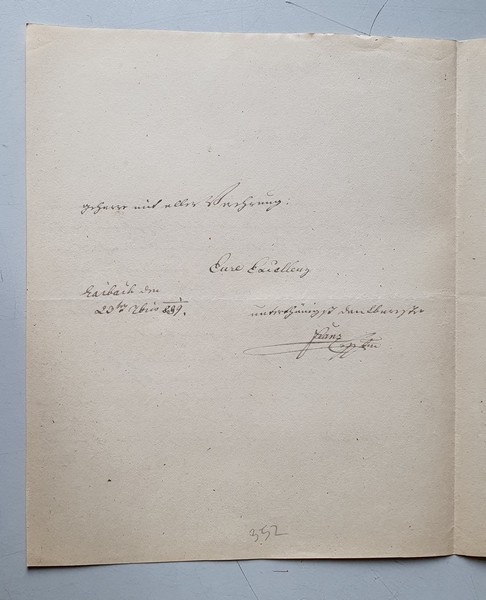 geharre mit aller Verehrung.
Eure Excellenz
Laibach den
23ten 839.
unterthänigst dankbarster
Franz
352